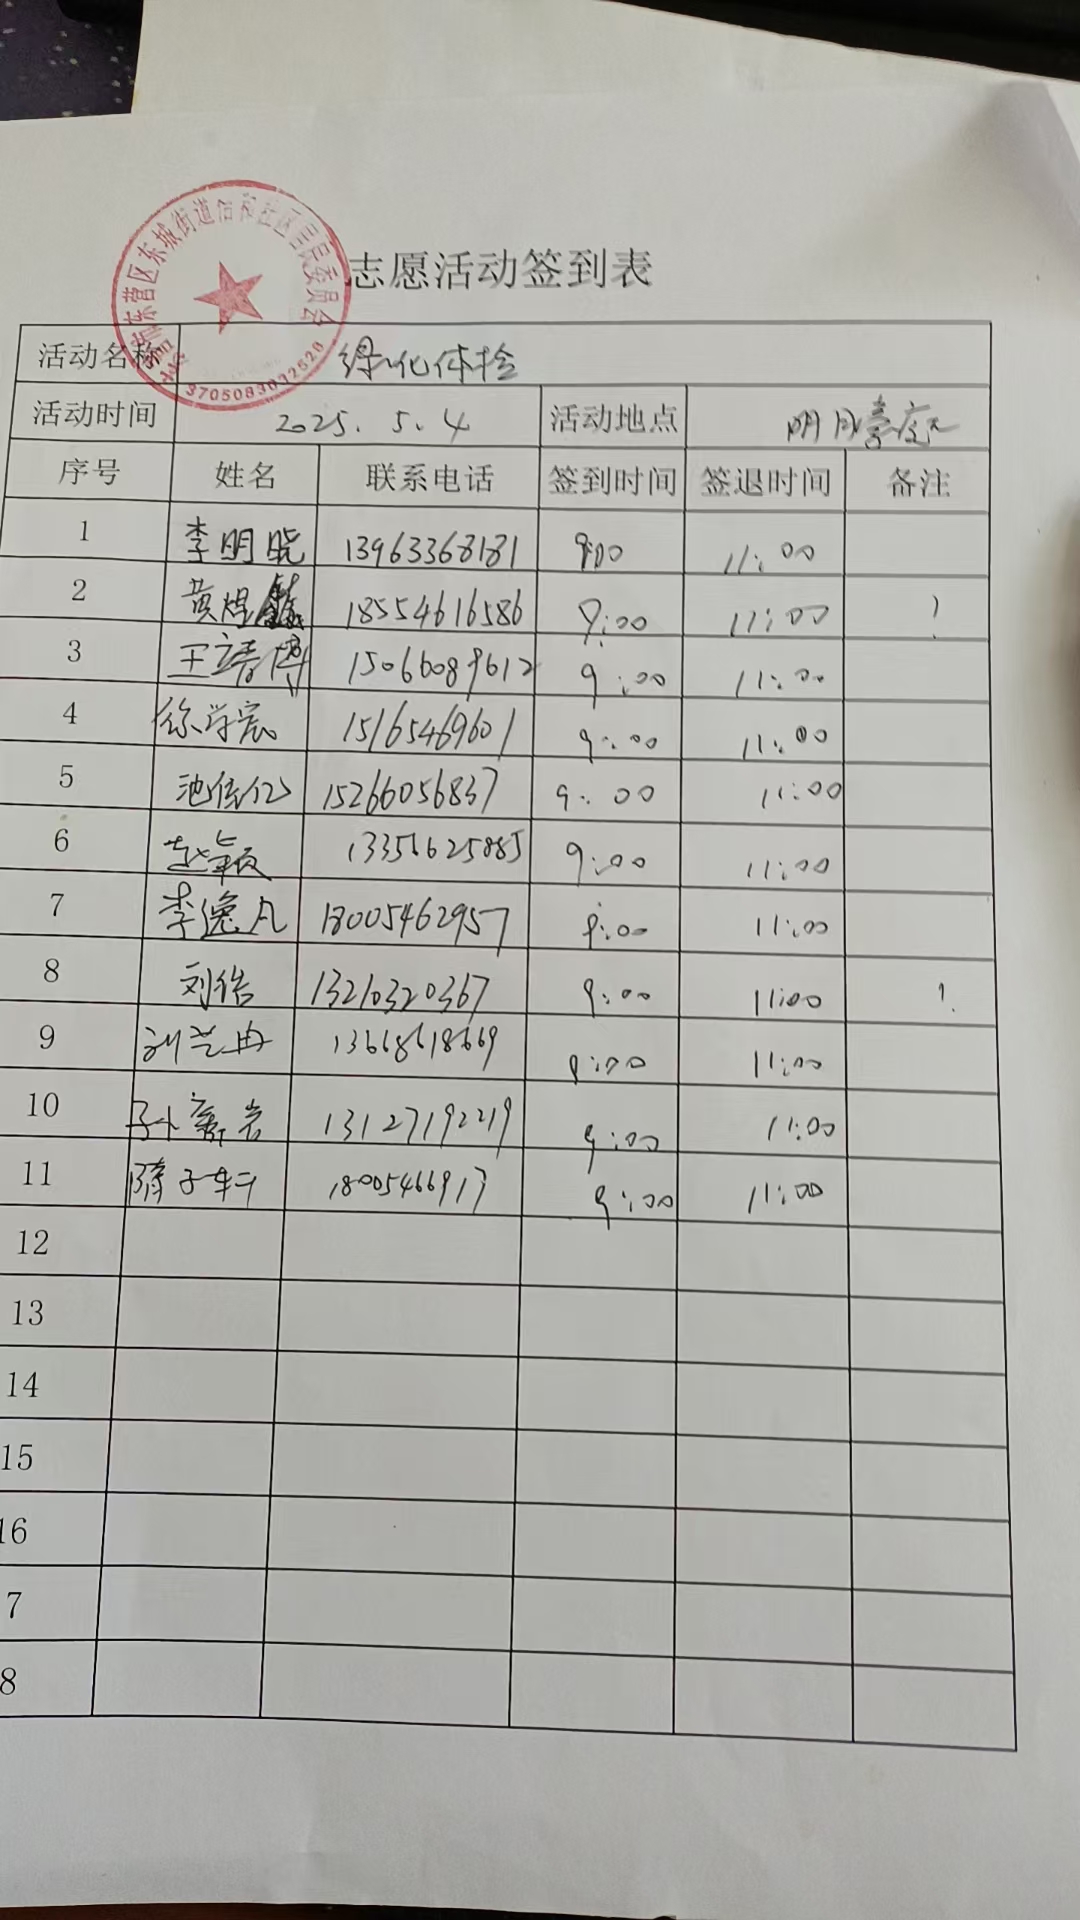 东营区东城街道信和社区居民委员会
3705083032528
志愿活动签到表
活动名称 绿化体检
活动时间 2025.5.4 活动地点 明月豪庭
序号 姓名 联系电话 签到时间 签退时间 备注
1 李明晓 13963368181 9:00 11:00
2 黄煜鑫 18554616586 9:00 11:00
3 王靖博 15066089612 9:00 11:00
4 徐学宸 15165469601 9:00 11:00
5 池佳亿 15266056837 9:00 11:00
6 赵颖 13351625885 9:00 11:00
7 李逸凡 18005462957 9:00 11:00
8 刘皓 13210320367 9:00 11:00
9 刘芝冉 13668618669 9:00 11:00
10 孙 13127192219 9:00 11:00
11 隋子轩 18005466917 9:00 11:00
12
13
14
15
16
7
8